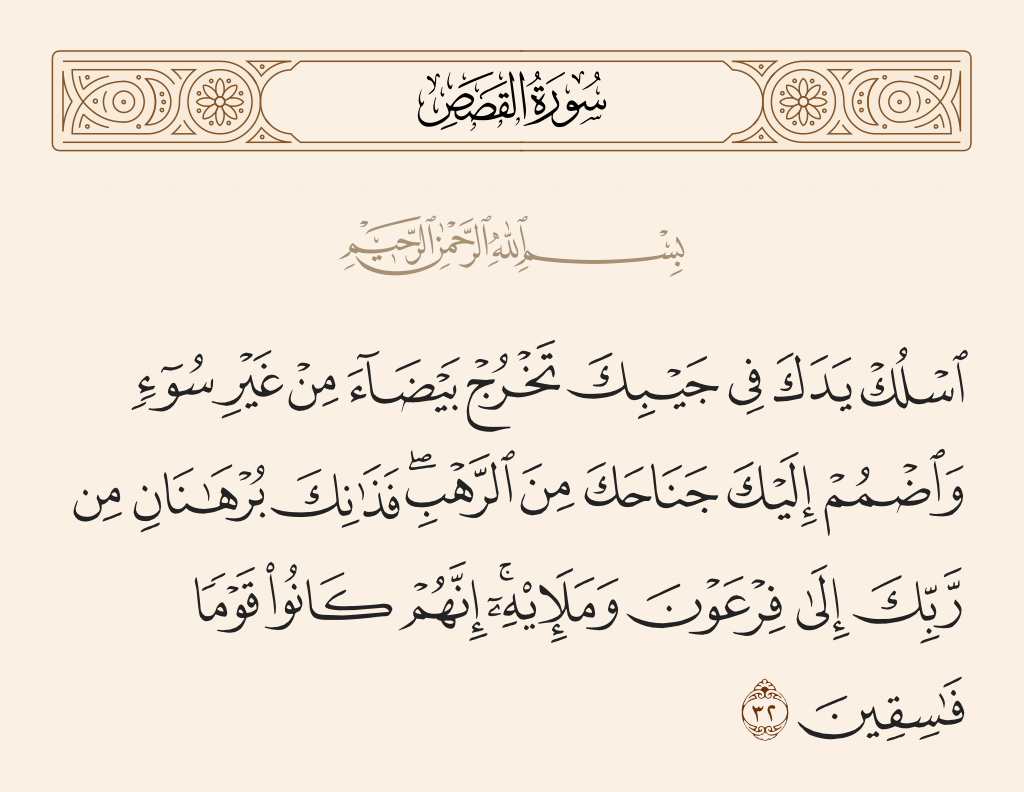 سُورَةُ القَصَصِ
بِسْمِ ٱللَّهِ ٱلرَّحْمَٰنِ ٱلرَّحِيمِ
ٱسْلُكْ يَدَكَ فِى جَيْبِكَ تَخْرُجْ بَيْضَآءَ مِنْ غَيْرِ سُوٓءٍ
وَٱضْمُمْ إِلَيْكَ جَنَاحَكَ مِنَ ٱلرَّهْبِ ۖ فَذَٰنِكَ بُرْهَـٰنَانِ مِن
رَّبِّكَ إِلَىٰ فِرْعَوْنَ وَمَلَإِي۟هِۦٓ ۚ إِنَّهُمْ كَانُوا۟ قَوْمًا
فَـٰسِقِينَ ٣٢